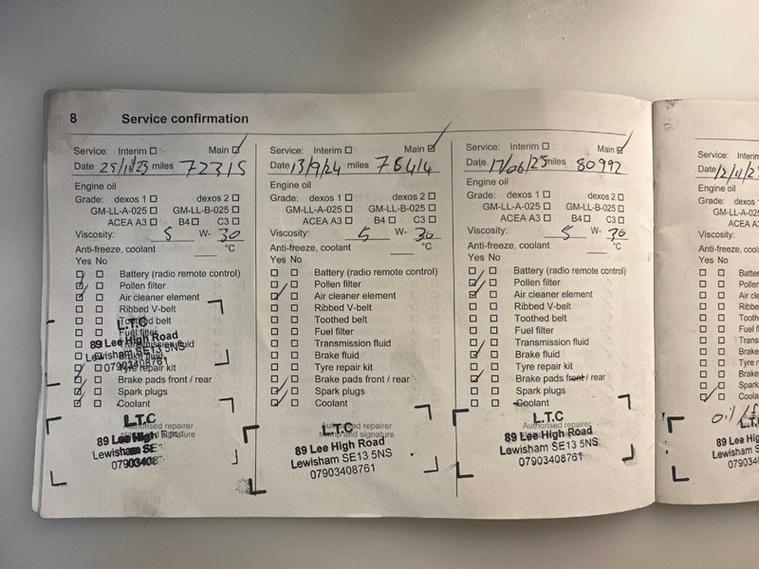 8 Service confirmation
Service: Interim ☐ Main ☑
Date 25/11/23 miles 72315
Engine oil
Grade: dexos 1 ☐ dexos 2 ☐
GM-LL-A-025 ☐ GM-LL-B-025 ☐
ACEA A3 ☐ B4 ☐ C3 ☐
Viscosity: 5 W- 30
Anti-freeze, coolant °C
Yes No
Battery (radio remote control)
Pollen filter
Air cleaner element
Ribbed V-belt
Toothed belt
Fuel filter
Transmission fluid
Brake fluid
Tyre repair kit
Brake pads front / rear
Spark plugs
Coolant
L.T.C
89 Lee High Road
Lewisham SE13 5NS
07903408761
Authorised repairer
L.T.C
89 Lee High
Lewisham SE1
07903408
Service: Interim ☐ Main ☑
Date 13/9/24 miles 76414
Engine oil
Grade: dexos 1 ☐ dexos 2 ☐
GM-LL-A-025 ☐ GM-LL-B-025 ☐
ACEA A3 ☐ B4 ☐ C3 ☐
Viscosity: 5 W- 30
Anti-freeze, coolant °C
Yes No
Battery (radio remote control)
Pollen filter
Air cleaner element
Ribbed V-belt
Toothed belt
Fuel filter
Transmission fluid
Brake fluid
Tyre repair kit
Brake pads front / rear
Spark plugs
Coolant
Authorised repairer
stamp and signature
L.T.C
89 Lee High Road
Lewisham SE13 5NS
07903408761
Service: Interim ☐ Main ☑
Date 17/06/25 miles 80992
Engine oil
Grade: dexos 1 ☐ dexos 2 ☐
GM-LL-A-025 ☐ GM-LL-B-025 ☐
ACEA A3 ☐ B4 ☐ C3 ☐
Viscosity: 5 W- 30
Anti-freeze, coolant °C
Yes No
Battery (radio remote control)
Pollen filter
Air cleaner element
Ribbed V-belt
Toothed belt
Fuel filter
Transmission fluid
Brake fluid
Tyre repair kit
Brake pads front / rear
Spark plugs
Coolant
Authorised repairer
L.T.C
89 Lee High Road
Lewisham SE13 5NS
07903408761
Service: Interim
Date
Engine oil
Grade: dexos
GM-LL-A-02
ACEA A
Viscosity:
Anti-freeze, cool
Yes No
Batte
Pollen
Air cle
Ribbe
Tooth
Fuel f
Trans
Brake
Tyre r
Brake
Spark
Coola
oil
L.T.
89 Lee Hig
Lewisham
079034